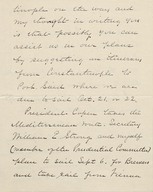 tinople on the way and
my thought in writing you
is that possibly you can
assist us in our plans
by suggesting an itinerary
from Constantinople to
Port Said where we are
due to sail Oct. 21 or 22.
President Capen takes the
Mediterranean route. Secretary
William E. Strong and myself
(member of the Prudential Committee)
plan to sail Sept 6, for Bremen
and take rail from Vienna